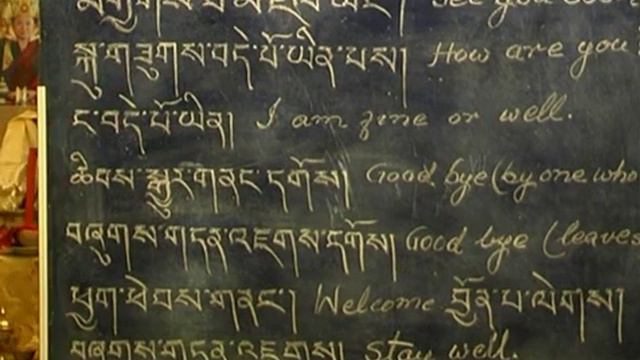 See you soon
སྐུ་གཟུགས་བདེ་པོ་ཡིན་པས། How are you
ང་བདེ་པོ་ཡིན། I am fine or well.
ཆིབས་སྒྱུར་གནང་དགོས། Good bye (by one who
བཞུགས་གདན་འཇགས་དགོས། Good bye (leaves
ཕྱག་ཕེབས་གནང་། Welcome བྱོན་པ་ལེགས།
བཞུགས་གདན་འཇགས། Stay well